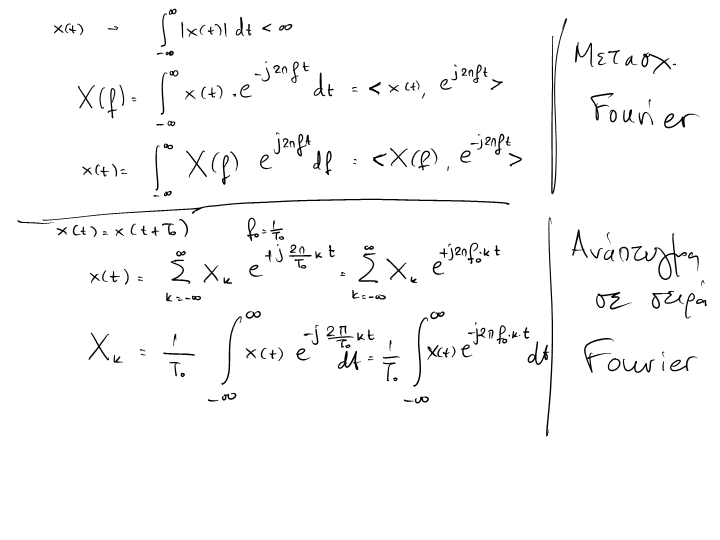 x(t) → ∫_{-∞}^{∞} |x(t)| dt < ∞
X(f) = ∫_{-∞}^{∞} x(t) · e^{-j2πft} dt = < x(t), e^{j2πft} >
x(t) = ∫_{-∞}^{∞} X(f) e^{j2πft} df = < X(f), e^{-j2πft} >
Μετασχ.
Fourier
x(t) = x(t + T₀) f₀ = 1/T₀
x(t) = ∑_{k=-∞}^{∞} X_k e^{+j (2π/T₀) k t} = ∑_{k=-∞}^{∞} X_k e^{+j2πf₀·k t}
X_k = 1/T₀ ∫_{-∞}^{∞} x(t) e^{-j (2π/T₀) k t} dt = 1/T₀ ∫_{-∞}^{∞} x(t) e^{-j2πf₀·k·t} dt
Ανάπτυγμα
σε σειρά
Fourier